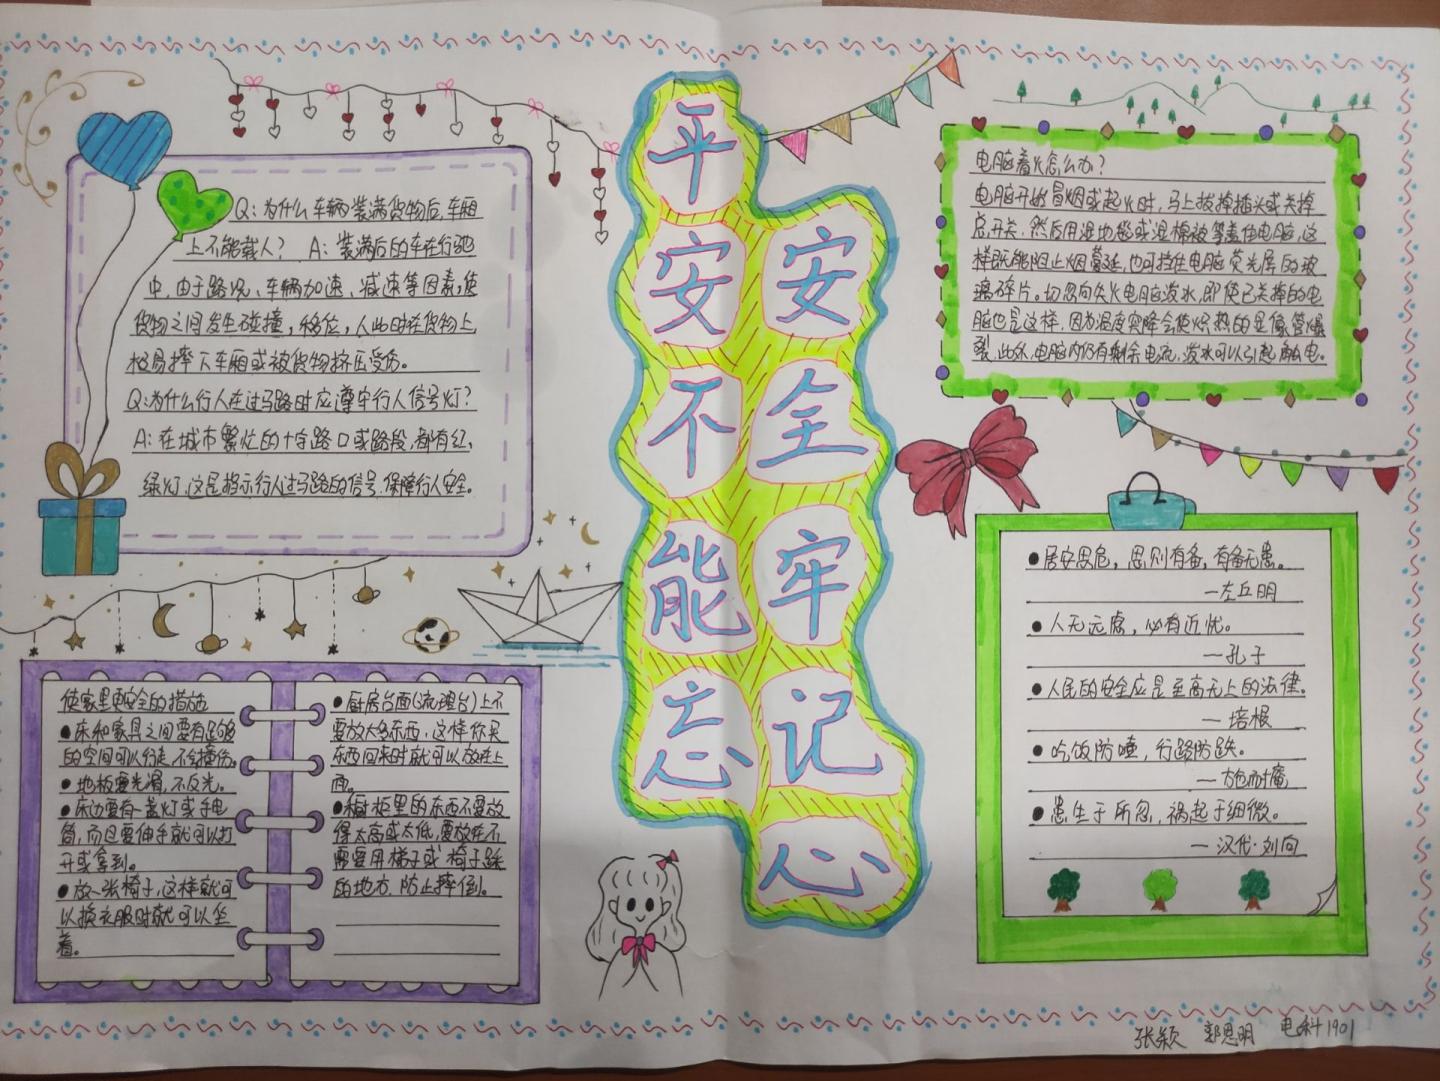 平安不能忘
安全牢记心
Q:为什么车辆装满货物后,车厢
上不能载人? A:装满后的车在行驶
中,由于路况、车辆加速、减速等因素,使
货物之间发生碰撞,移位,人此时在货物上
极易摔下车厢或被货物挤压受伤。
Q:为什么行人在过马路时应遵守行人信号灯?
A:在城市繁忙的十字路口或路段,都有红、
绿灯,这是指示行人过马路的信号,保障行人安全。
电脑着火怎么办?
电脑开始冒烟或起火时,马上拔掉插头或关掉
总开关,然后用湿地毯或湿棉被等盖住电脑,这
样既能阻止烟蔓延,也可挡住电脑荧光屏的玻
璃碎片。切忌向失火电脑泼水,即使已关掉的电
脑也是这样,因为温度突降会使炽热的显像管爆
裂,此外,电脑内仍有剩余电流,泼水可以引起触电。
使家里更安全的措施
●床和家具之间要有足够
的空间可以行走,不会撞伤。
●地板要光滑,不反光。
●床边要有一盏灯或手电
筒,而且要伸手就可以打
开或拿到。
●放一张椅子,这样就可
以换衣服时就可以坐
着。
●厨房台面(流理台)上不
要放太多东西,这样你买
东西回来时就可以放在上
面。
●橱柜里的东西不要放
得太高或太低,要放在不
需要用梯子或椅子踩
的地方,防止摔倒。
●居安思危,思则有备,有备无患。
—左丘明
●人无远虑,必有近忧。
—孔子
●人民的安全应是至高无上的法律。
—培根
●吃饭防噎,行路防跌。
●患生于所忽,祸起于细微。
—汉代·刘向
张颖 郭思明 电科1901